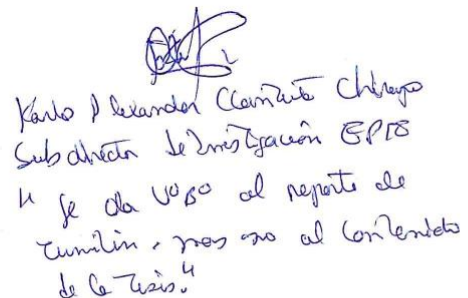 Karlo Alexander Ccantuta Chirapo
Subdirector de Investigación EPIS
" Se da VºBº al reporte de
turnitin, mas no al contenido
de la Tesis."